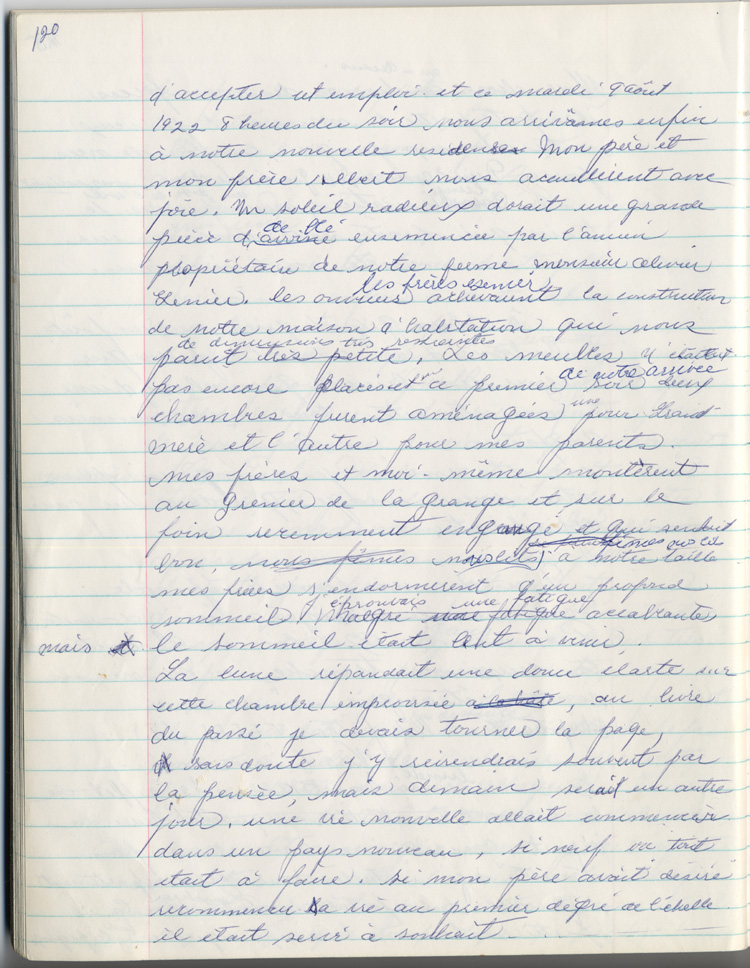 120
d'accepter cet emploi. et ce mardi 9 août
1922 8 heures du soir nous arrivâmes enfin
à notre nouvelle residense Mon père et
mon frère Albert nous accueilirent avec
joie. Un soleil radieux dorait une grande
de blé
pièce d'avoine ensemencée par l'ancien
propriétaire de notre ferme monsieur Olivier
les frères
Lenier. les ouvriers achevaient la construction
de notre maison d'habitation qui nous
de dimensions très restreintes
parut très petite. Les meubles n'étaient
de notre arrivée
pas encore placés et ce premier soir deux
une
chambres furent aménagées pour Grand-
mère et l'autre pour mes parents.
mes frères et moi-même montèrent
au grenier de la grange et sur le
foin recemment engrangé et qui sentait
bon, nous fîmes nos lits à notre taille
mes frères s'endormirent d'un profond
j'éprouvais une fatigue
sommeil malgré une fatigue accablante
mais et le sommeil était lent à venir.
La lune répandait une douce clarte sur
cette chambre improvisée, au livre
du passé je devais tourner la page,
sans doute j'y reviendrais souvent par
la pensée, mais demain serait un autre
jour. une vie nouvelle allait commencer
dans un pays nouveau, si neuf où tout
était à faire. si mon père avait désiré
recommencer la vie au premier degré de l'échelle
il était servi à souhait